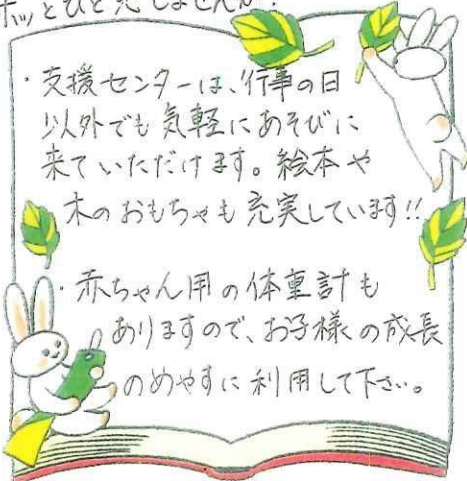 ホッとひと息しませんか?
・支援センターは、行事の日
以外でも気軽にあそびに
来ていただけます。絵本や
木のおもちゃも充実しています!!
・赤ちゃん用の体重計も
ありますので、お子様の成長
のめやすに利用して下さい。